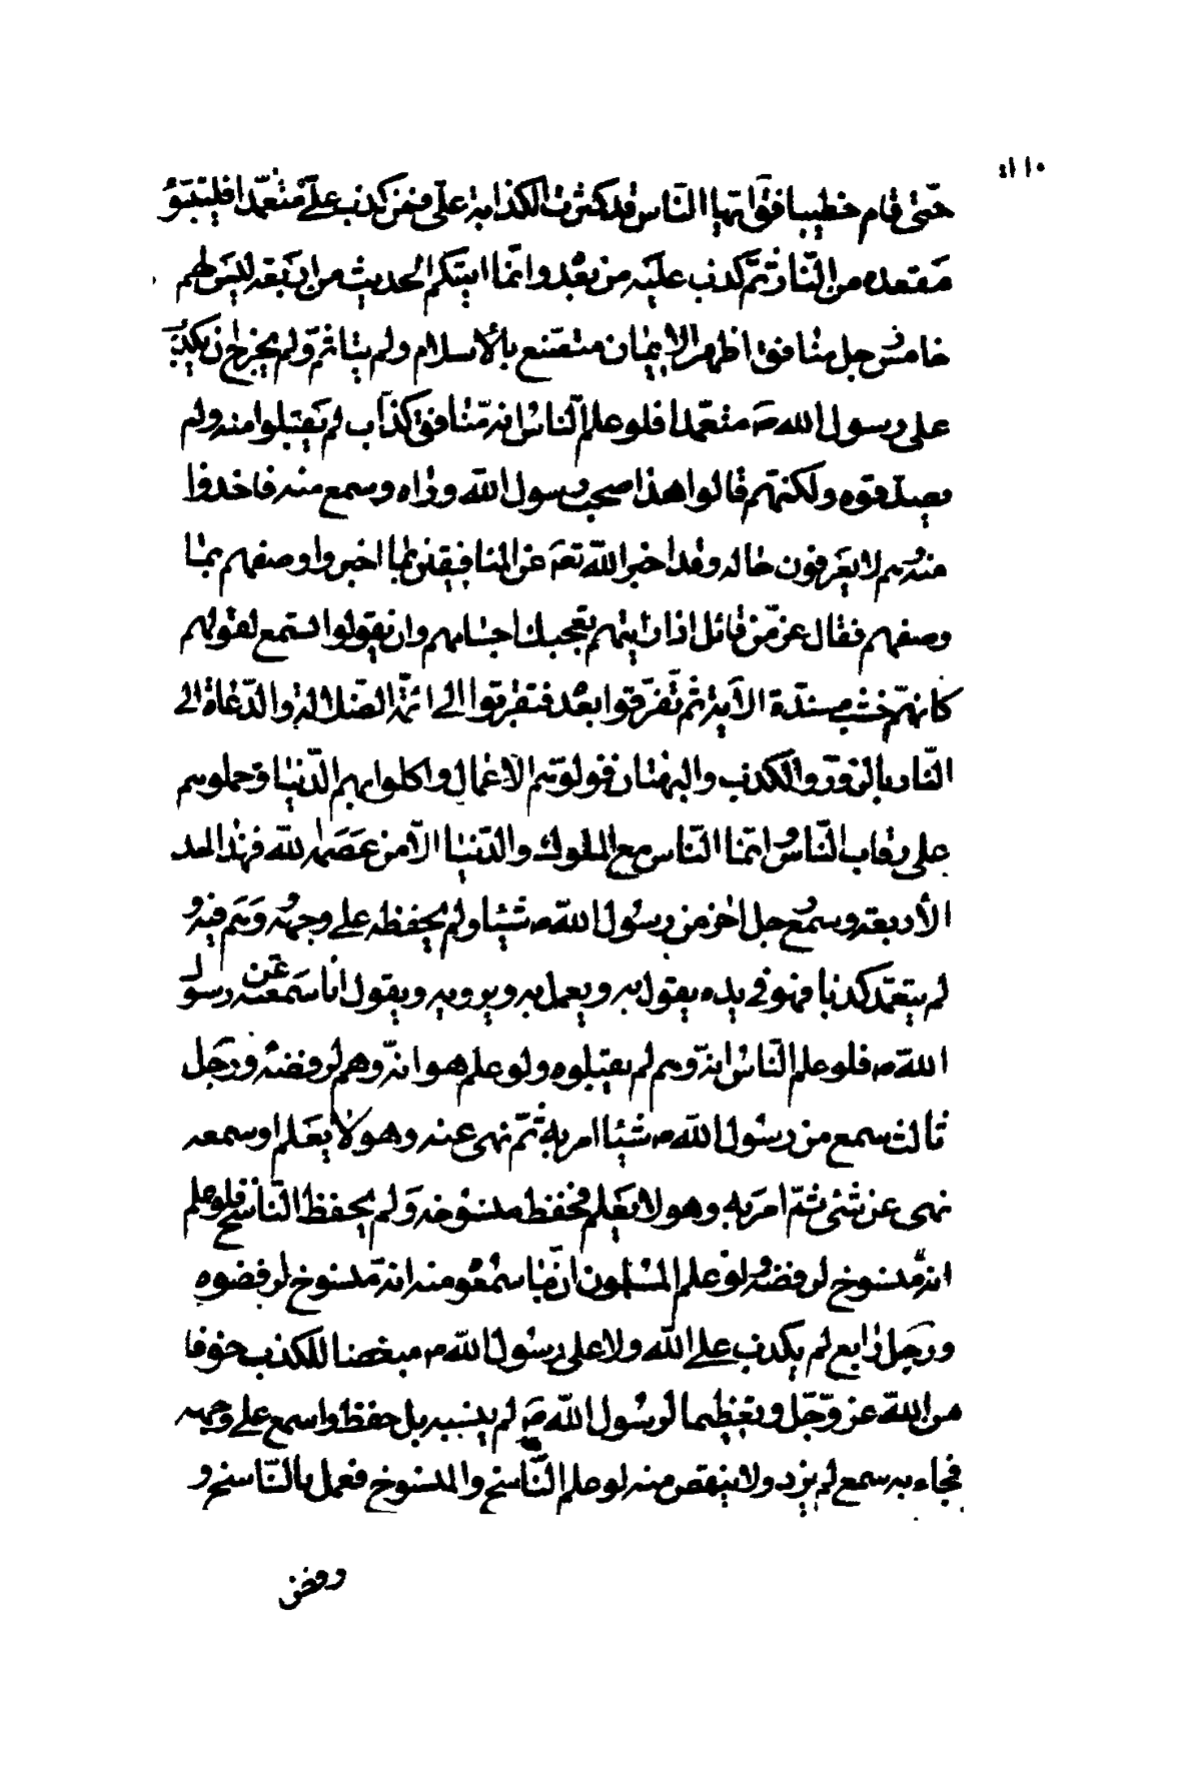 ١١٠
حتى قام خطيبا فقال ايها الناس قد كثرت الكذابة علي فمن كذب علي متعمدا فليتبوؤ
مقعده من النار ثم كذب عليه من بعد وانما ايتكم الحديث من اربعة ليس لهم
خامس رجل منافق اظهر الايمان متصنع بالاسلام ولم يتاثم ولم يحرج ان يكذب
على رسول الله ص متعمدا فلو علم الناس انه منافق كذاب لم يقبلوا منه ولم
يصدقوه ولكنهم قالوا هذا صحب رسول الله وراه وسمع منه فاخذوا
منه هم لا يعرفون حاله وقد اخبر الله تعه عن المنافقين بما اخبر واوصفهم بما
وصفهم فقال عز من قائل اذا رايتهم تعجبك اجسامهم وان يقولوا تستمع لقولهم
كانهم خشب مسندة الاية ثم تفرقوا بعد فتقربوا الى ائمة الضلالة والدعاة الى
النار بالزور والكذب والبهتان فولوهم الاعمال واكلوا بهم الدنيا وحملوهم
على رقاب الناس وانما الناس مع الملوك والدنيا الا من عصمه الله فهذا احد
الأربعة وسمع رجل اخر من رسول الله ص شيئا ولم يحفظه على وجهه وهم فيه و
لم يتعمد كذبا فهو في يده يقول به ويعمل به ويرويه ويقول انا سمعته عن رسول
الله ص فلو علم الناس انه وهم لم يقبلوه ولو علم هو انه وهم لرفضه ورجل
ثالث سمع من رسول الله ص شيئا امر به ثم نهى عنه وهو لا يعلم او سمعه
نهى عن شئ ثم امر به وهو لا يعلم فحفظ منسوخه ولم يحفظ الناسخ فلو علم
انه منسوخ لرفضه ولو علم المسلمون ان ما سمعو منه انه منسوخ لرفضوه
ورجل رابع لم يكذب على الله ولا على رسول الله ص مبغضا للكذب خوفا
من الله عز وجل وتعظيما لرسول الله ص لم ينسه بل حفظ واسمع على وجهه
فجاء به سمع لم يزد ولا ينقص منه لو علم الناسخ والمنسوخ فعمل بالناسخ و
ورفض